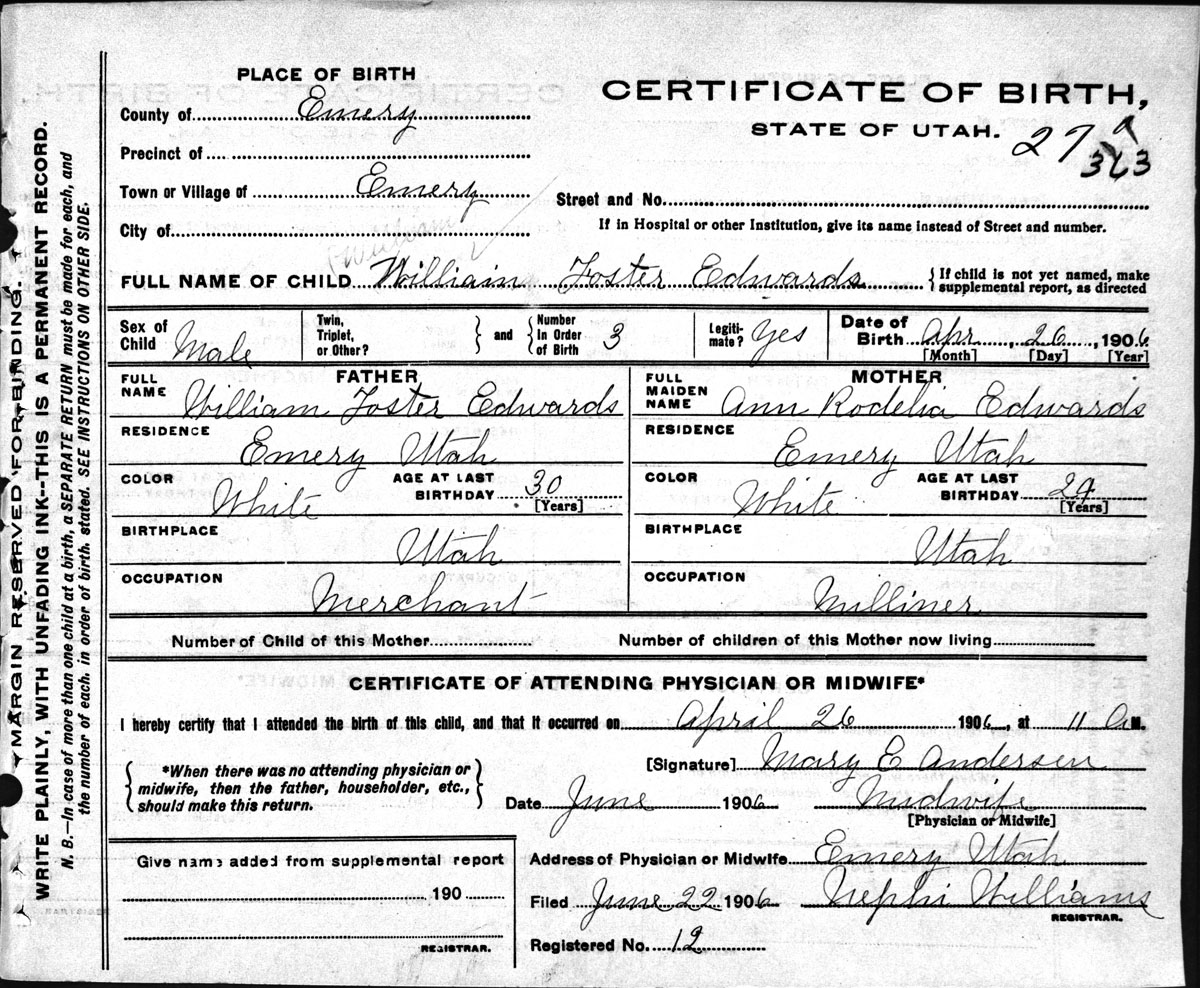 PLACE OF BIRTH
CERTIFICATE OF BIRTH,
STATE OF UTAH.
27
County of Emery
Precinct of
Town or Village of Emery
Street and No.
If in Hospital or other Institution, give its name instead of Street and number.
City of
(William
FULL NAME OF CHILD William Foster Edwards { If child is not yet named, make supplemental report, as directed
Sex of Child Male
Twin, Triplet, or Other? } and { Number in Order of Birth 3
Legitimate? Yes
Date of Birth Apr. 26, 1906
[Month] [Day] [Year]
FATHER
FULL NAME William Foster Edwards
RESIDENCE Emery Utah
COLOR White AGE AT LAST BIRTHDAY 30 [Years]
BIRTHPLACE Utah
OCCUPATION Merchant
MOTHER
FULL MAIDEN NAME Ann Rodelia Edwards
RESIDENCE Emery Utah
COLOR White AGE AT LAST BIRTHDAY 29 [Years]
BIRTHPLACE Utah
OCCUPATION Milliner
Number of Child of this Mother Number of children of this Mother now living
CERTIFICATE OF ATTENDING PHYSICIAN OR MIDWIFE*
I hereby certify that I attended the birth of this child, and that it occurred on April 26 1906, at 11 A M.
{ *When there was no attending physician or midwife, then the father, householder, etc., should make this return. }
[Signature] Mary E Andersen
Date June 1906 Midwife
[Physician or Midwife]
Give name added from supplemental report
190
REGISTRAR.
Address of Physician or Midwife Emery Utah
Filed June 22 1906 Nephi Williams
REGISTRAR.
Registered No. 12
MARGIN RESERVED FOR BINDING.
WRITE PLAINLY, WITH UNFADING INK--THIS IS A PERMANENT RECORD.
N. B.—In case of more than one child at a birth, a SEPARATE RETURN must be made for each, and
the number of each, in order of birth, stated. SEE INSTRUCTIONS ON OTHER SIDE.